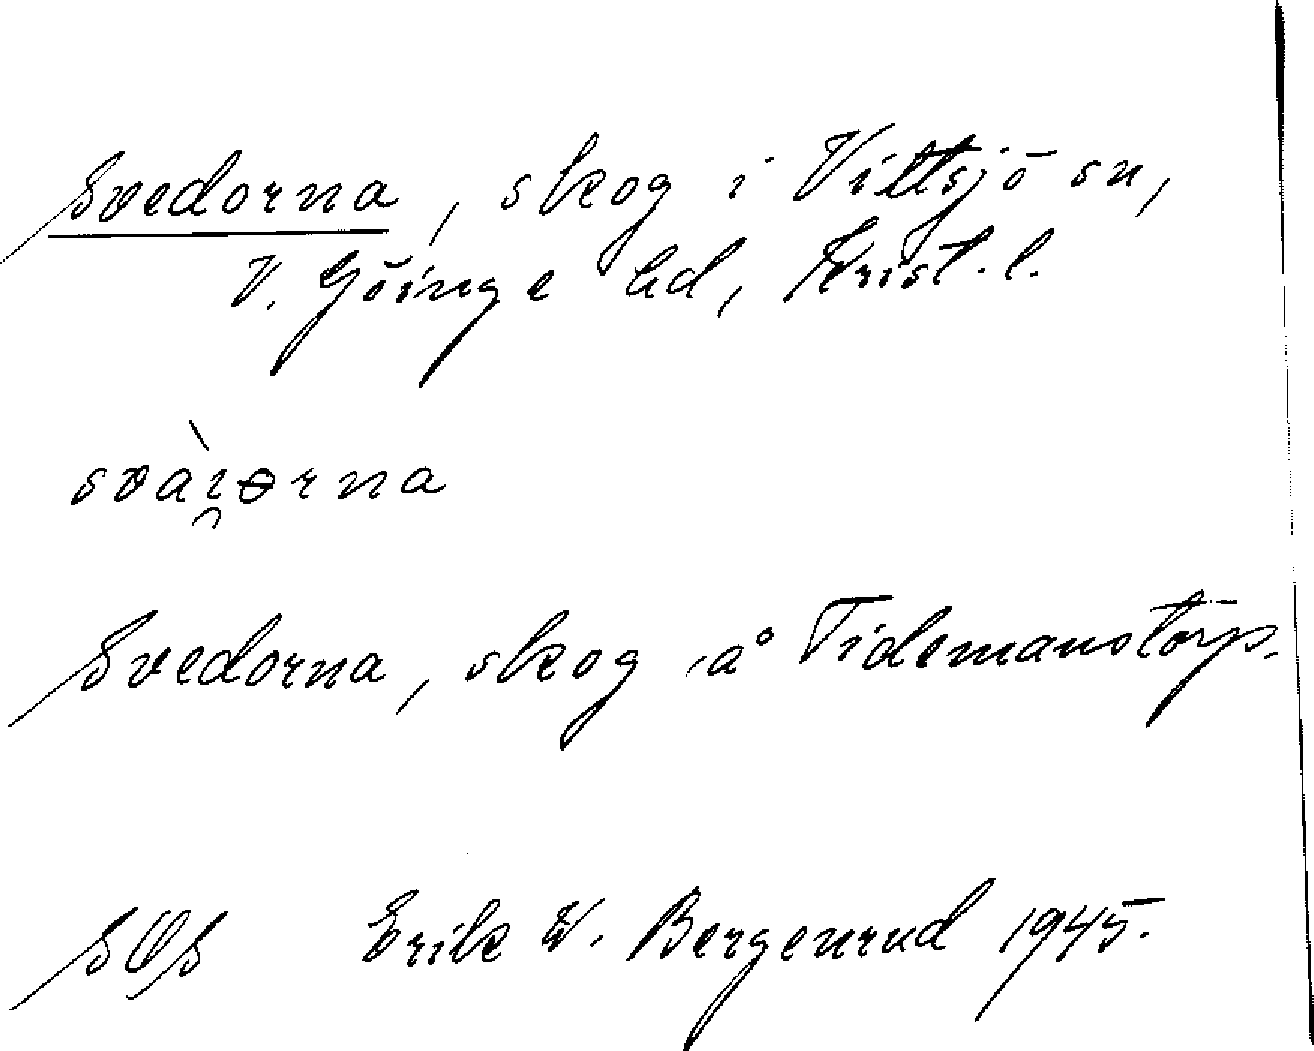 Svedorna, skog i Vittsjö sn,
V. Göinge hd, Krist. l.
svàı̯ɵrna
Svedorna, skog å Tidemanstorp.
SOS Erik W. Bergenrud 1945.